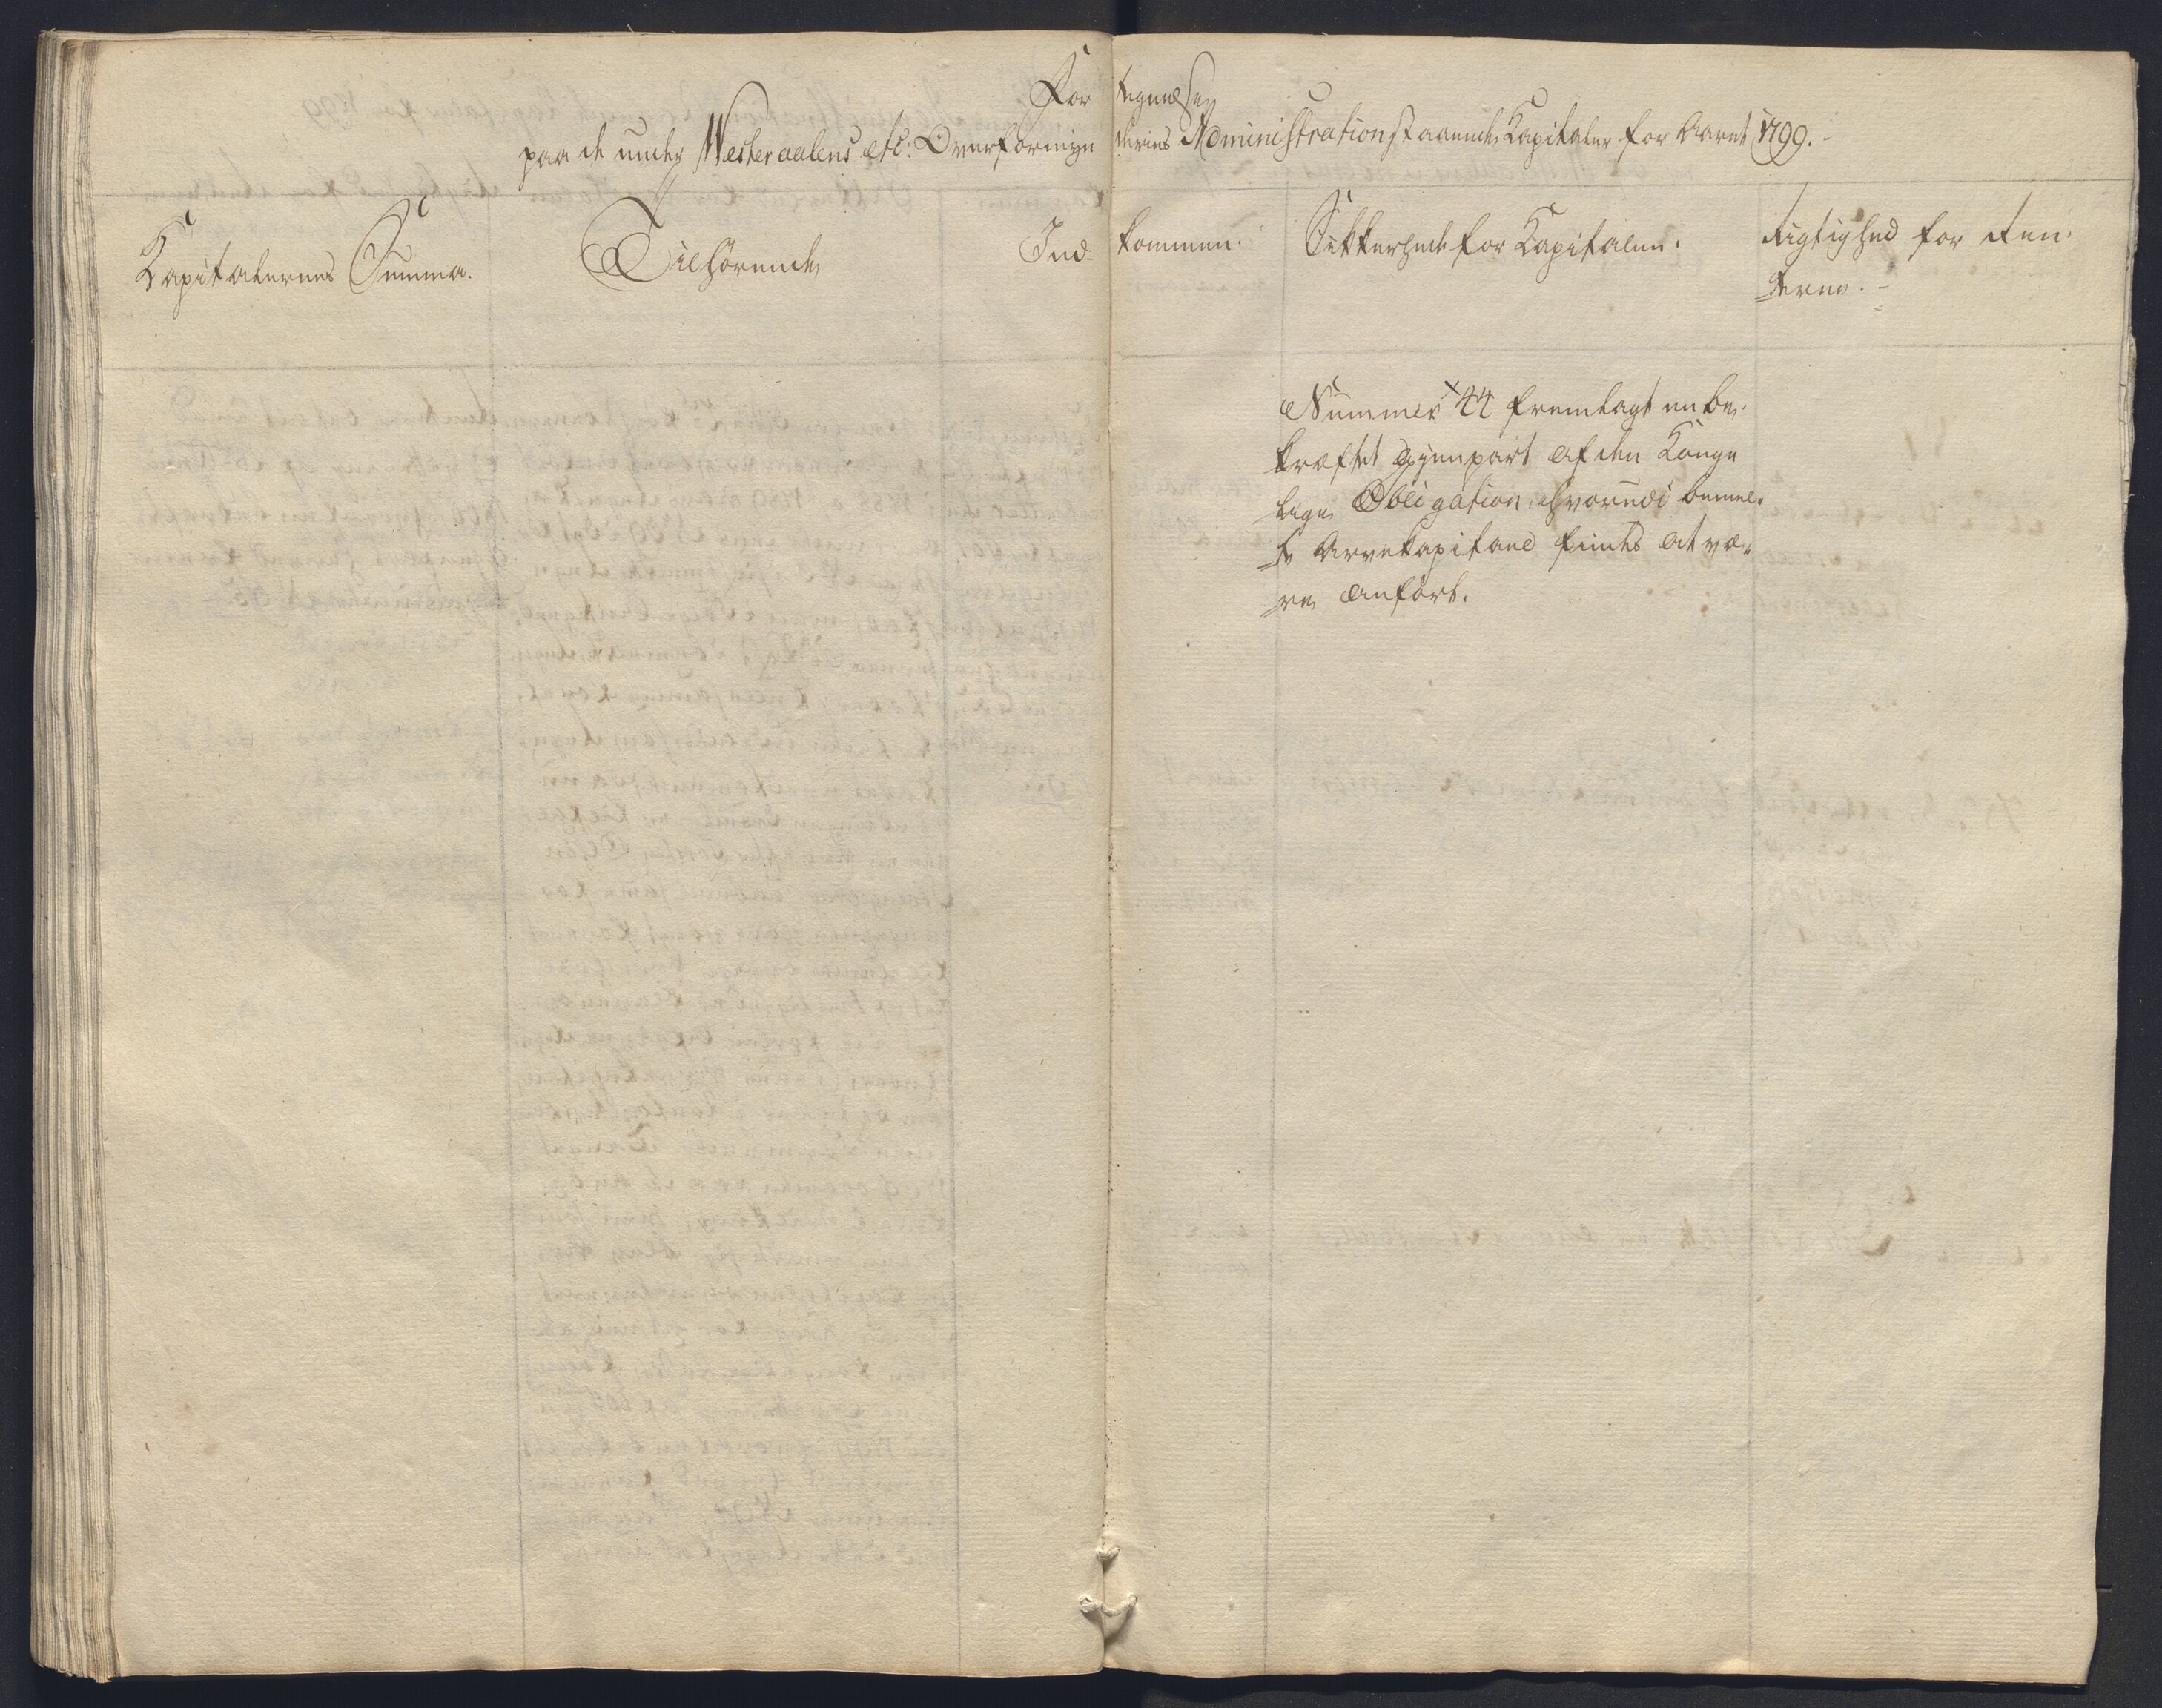 Fortegnelse
paa de under Westeraalens etc: Overformynderies Administration staaende Kapitaler for Aaret 1799.
Kapitalernes Summa.
Tilhørende
Indkommen.
Sikkerhed for Kapitalen.
Rigtighed for Ren-
terne.
Nummer 44 fremlagt en be-
kræftet Gjenpart af den Konge
lige Obligation, hvorudi bemel-
te Arvekapitael findes at væ-
re anført.